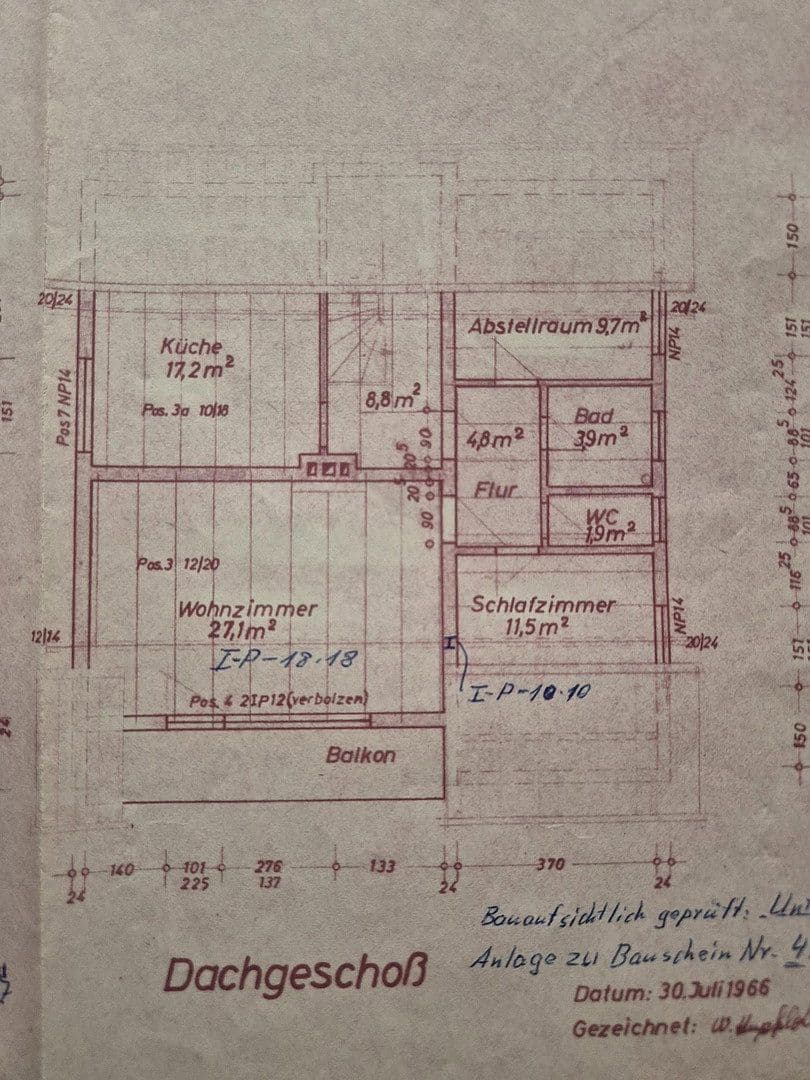 20/24
Küche
17,2m²
Pos. 3a 10/18
Pos 7 NP14
151
8,8m²
Abstellraum 9,7m²
20/24
NP14
4,8m²
Flur
Bad
3,9m²
WC
1,9m²
90
20⁵
20⁵
90
Pos. 3 12/20
Wohnzimmer
27,1m²
I-P-18·18
Schlafzimmer
11,5m²
I
I-P-10·10
12/14
NP14
20/24
Pos. 4 2IP12(verbolzen)
Balkon
24
150
151
151
25
124
88⁵
101
65
88⁵
101
25
116
151
150
140
101
225
276
137
133
370
24
24
24
Bauaufsichtlich geprüft:
Anlage zu Bauschein Nr. 4
Dachgeschoß
Datum: 30.Juli 1966
Gezeichnet: W.